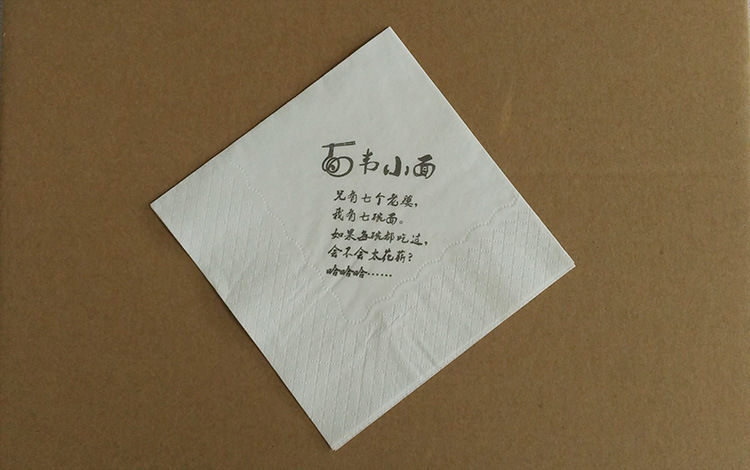 韦小面
兄有七个老婆，
我有七碗面。
如果每碗都吃过，
会不会太花薪？
哈哈哈……